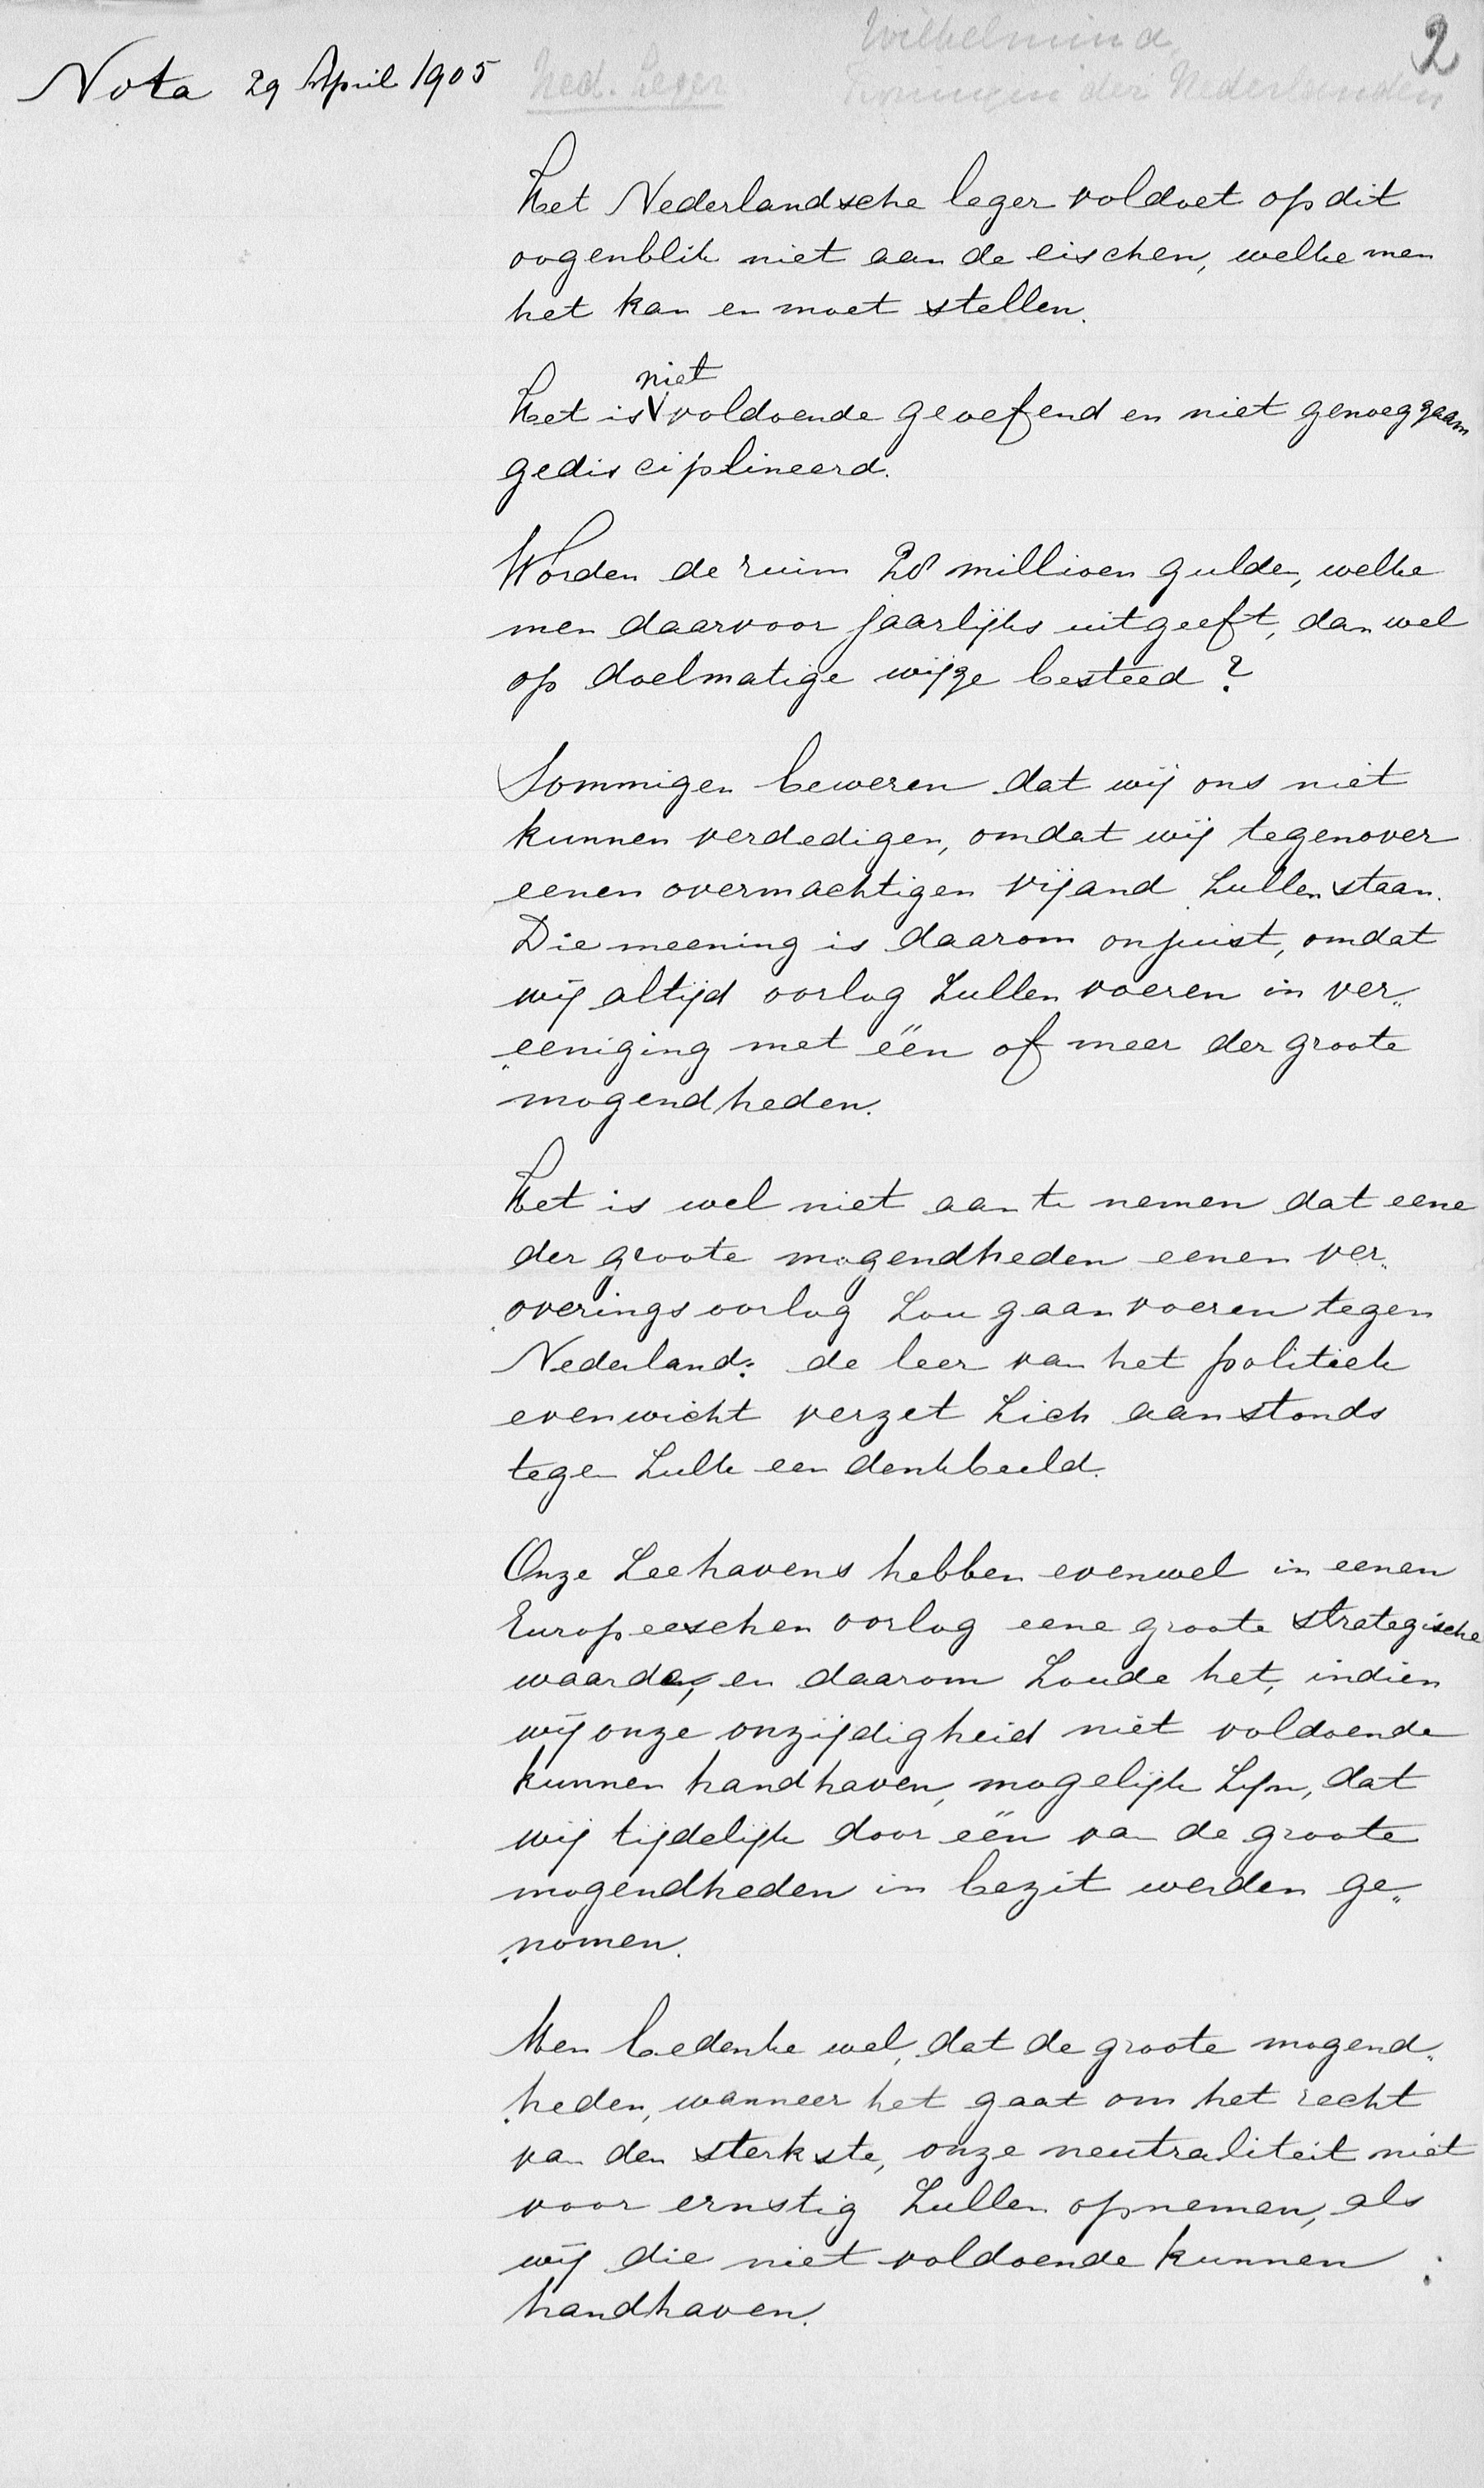 Wilhelmina, 2
Nota 29 April 1905 Ned. Leger Koningin der Nederlanden
Het Nederlandsche leger voldoet op dit
oogenblik niet aan de eischen, welke men
het kan en moet stellen.
niet
Het is V voldoende geoefend en niet genoegzaam
gedisciplineerd.
Worden de ruim 28 millioen gulden, welke
men daarvoor jaarlijks uitgeeft, dan wel
op doelmatige wijze besteed?
Sommigen beweren dat wij ons niet
kunnen verdedigen, omdat wij tegenover
eenen overmachtigen vijand zullen staan.
Die meening is daarom onjuist, omdat
wij altijd oorlog zullen voeren in ver„
„eeniging met één of meer der groote
mogendheden.
Het is wel niet aan te nemen dat eene
der groote mogendheden eenen ver„
„overingsoorlog zou gaan voeren tegen
Nederland: de leer van het politiek
evenwicht verzet zich aanstonds
tegen zulk een denkbeeld.
Onze zeehavens hebben evenwel in eenen
Europeeschen oorlog eene groote strategische
waarde, en daarom zoude het, indien
wij onze onzijdigheid niet voldoende
kunnen handhaven, mogelijk zijn, dat
wij tijdelijk door één van de groote
mogendheden in bezit werden ge„
„nomen.
Men bedenke wel, dat de groote mogend„
„heden, wanneer het gaat om het recht
van den sterkste, onze neutraliteit niet
voor ernstig zullen opnemen, als
wij die niet voldoende kunnen
handhaven.